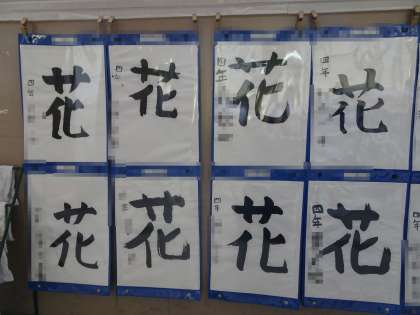 花
四年
花
四年
花
四年
花
四年
花
花
花
四年
花
四年